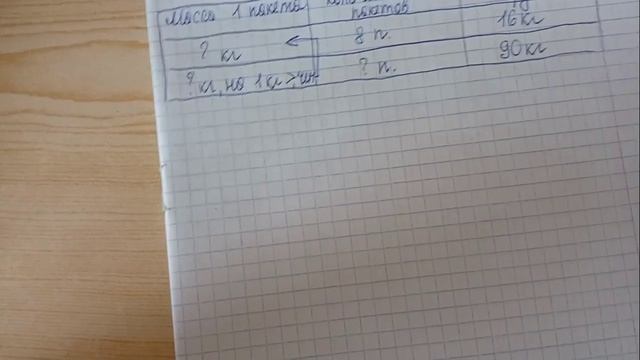 Масса 1 пакета
пакетов
? кг 8 п. 16 кг
? кг, но 1 кг > ? п. 90 кг